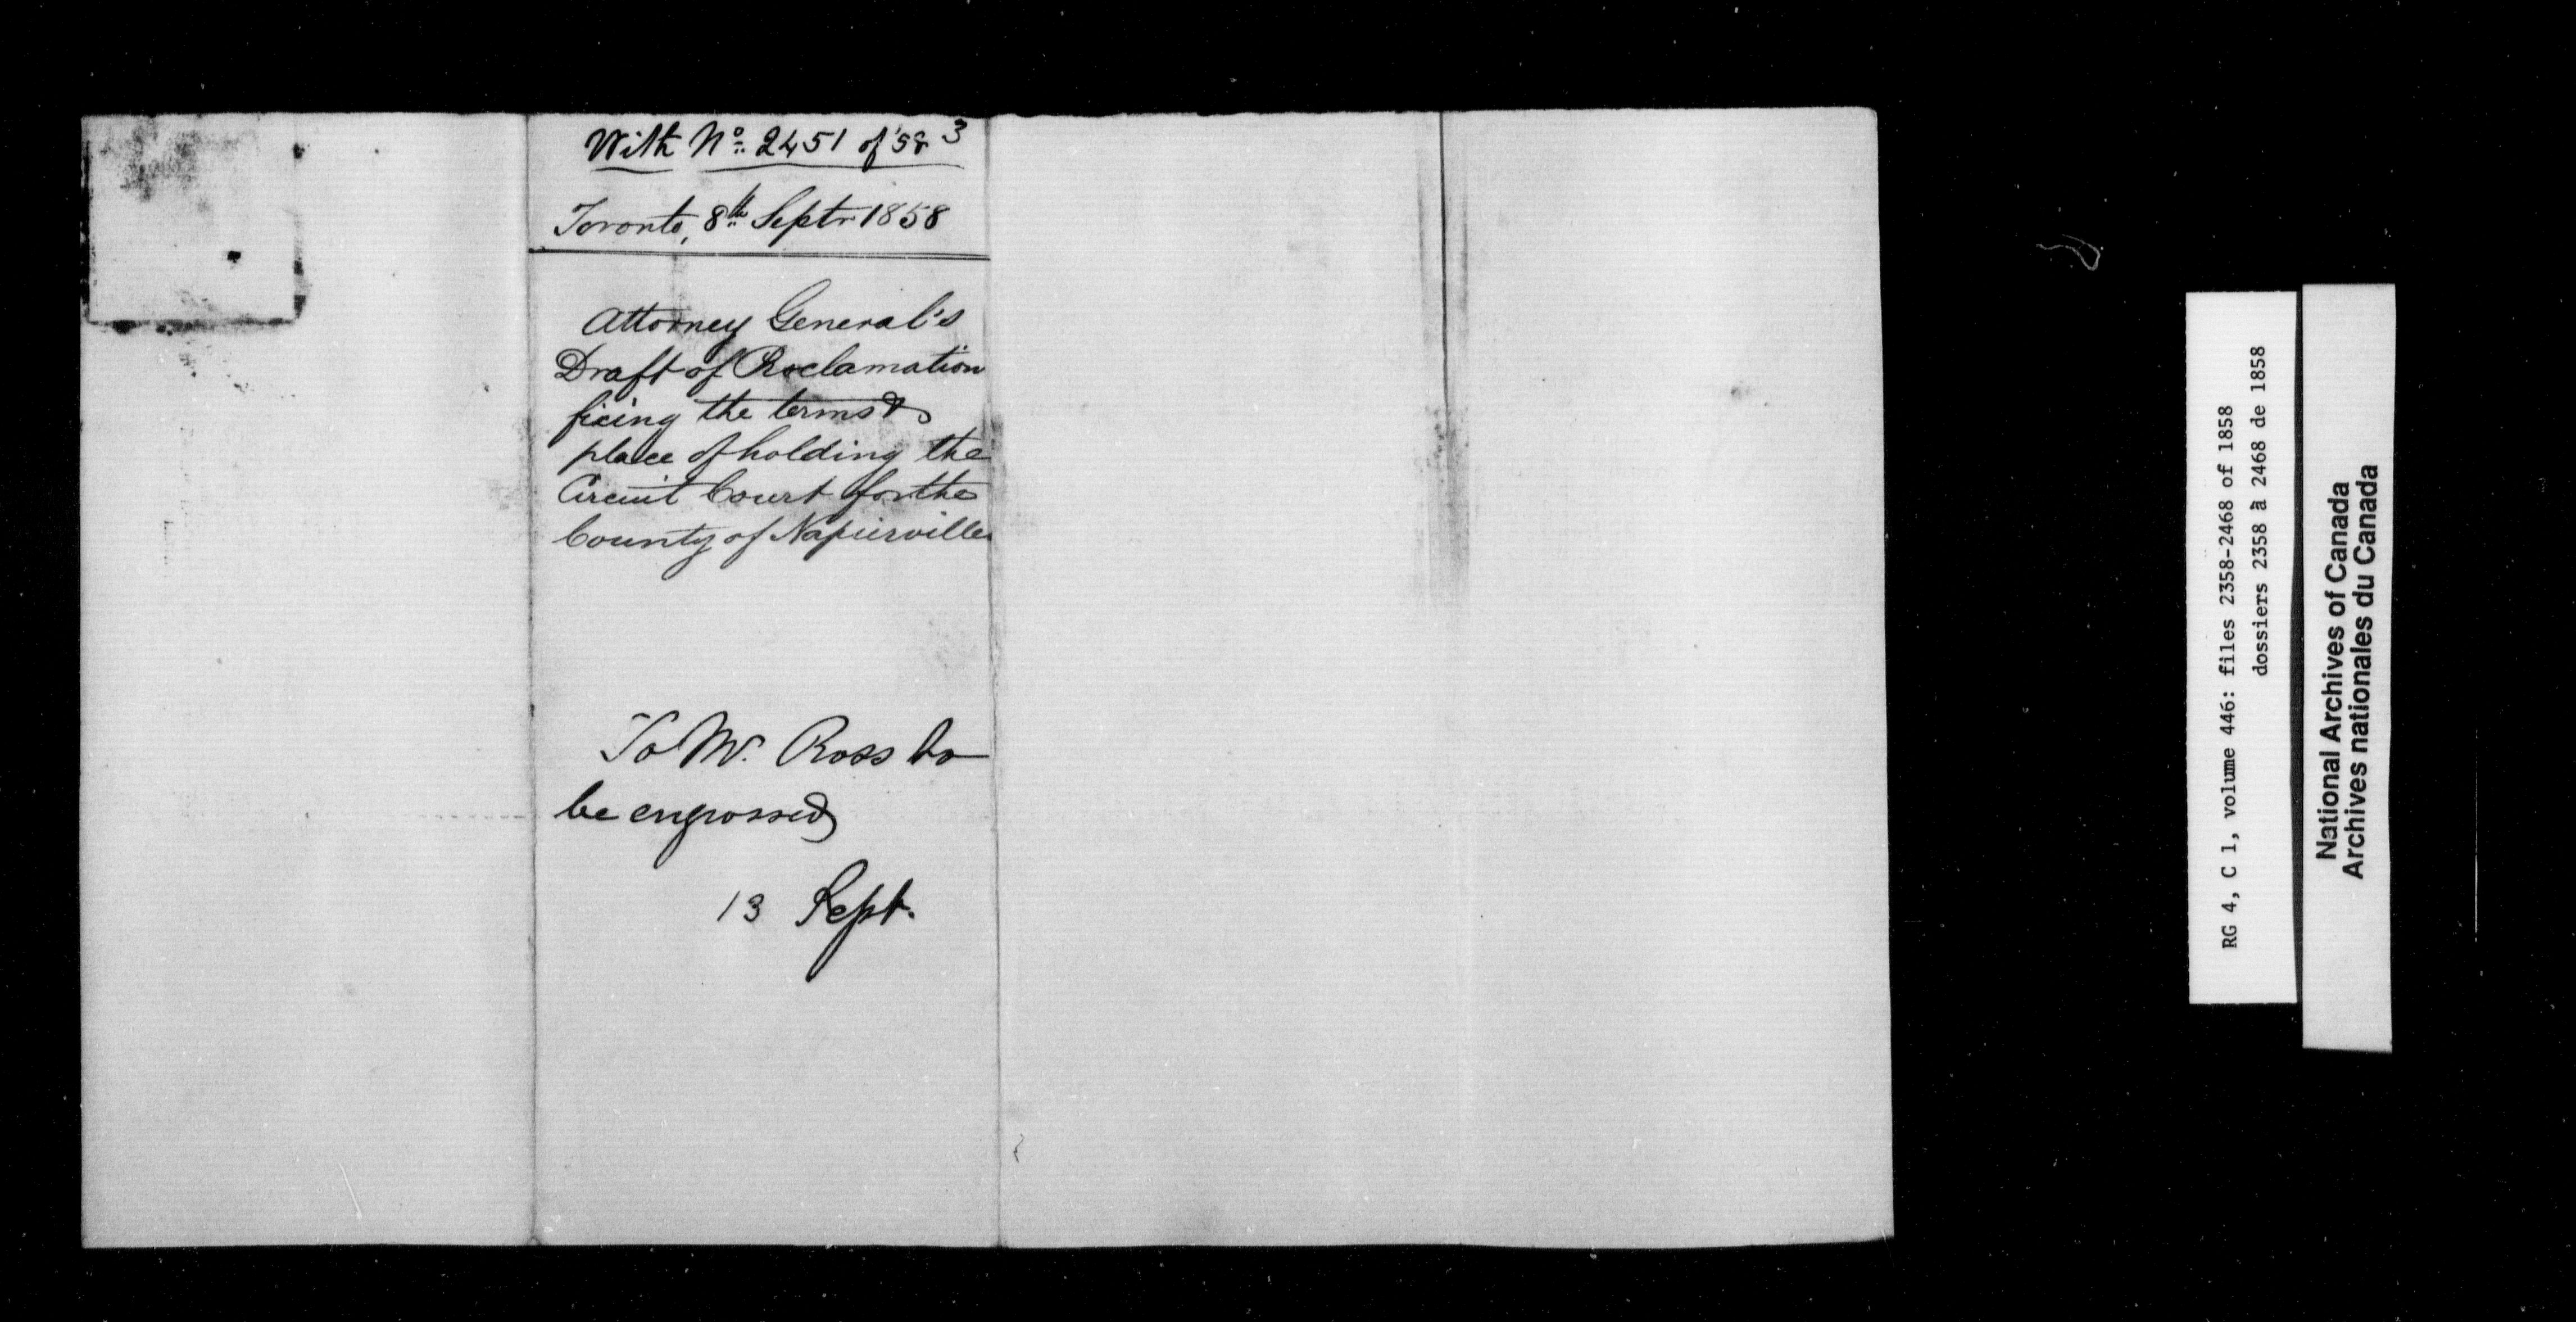 With No. 2451 of '58 3
Toronto, 8th Septr 1858
Attorney General's
Draft of Proclamation
fixing the terms &
place of holding the
Circuit Court for the
County of Napierville
To Mr. Ross to
be engrossed
13 Sept.
RG 4, C 1, volume 446: files 2358-2468 of 1858
dossiers 2358 à 2468 de 1858
National Archives of Canada
Archives nationales du Canada